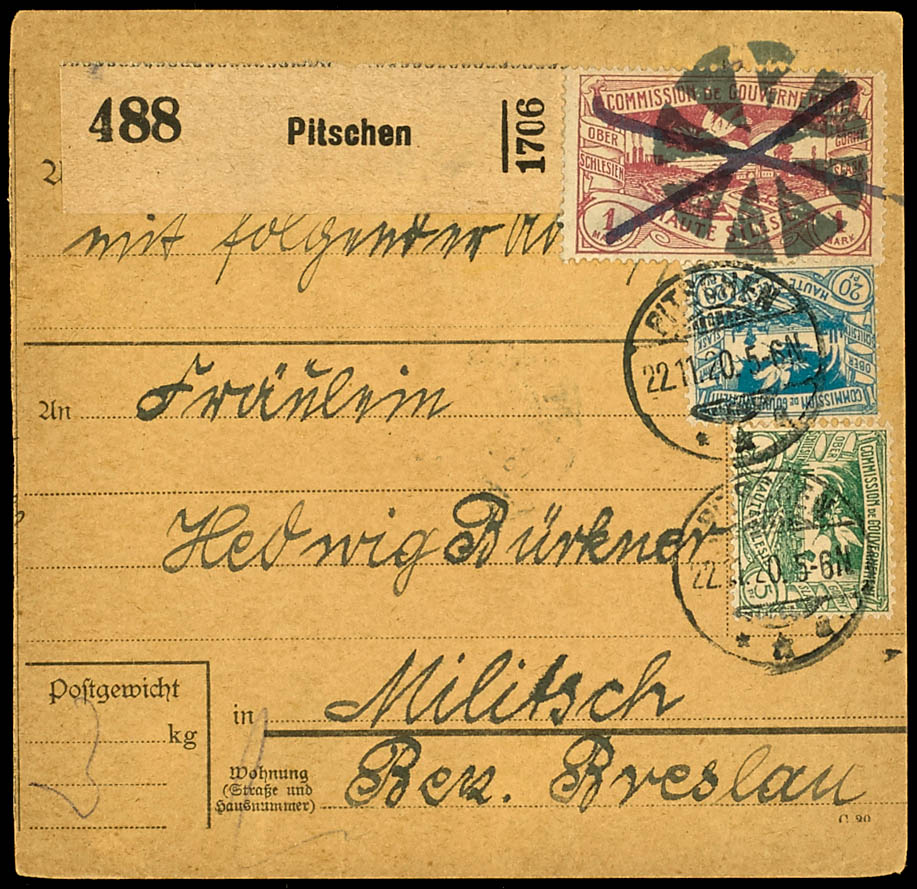 488 Pitschen 1706
COMMISSION DE GOUVERNEMENT
OBER
SCHLESIEN
GÓRNY
ŚLĄSK
1 MARK HAUTE SILÉSIE 1 MARK
mit folgender
PITSCHEN
22.11.20. 5-6N
20 HAUTE
OBER
COMMISSION DE GOUVERNEMENT
An Fräulein
COMMISSION DE GOUVERNEMENT
OBER
HAUTE SILÉSIE
5
22.11.20. 5-6N
Hedwig Bürkner
Postgewicht
kg
in Militsch
Wohnung
(Straße und
Hausnummer)
Bez. Breslau
C. 20